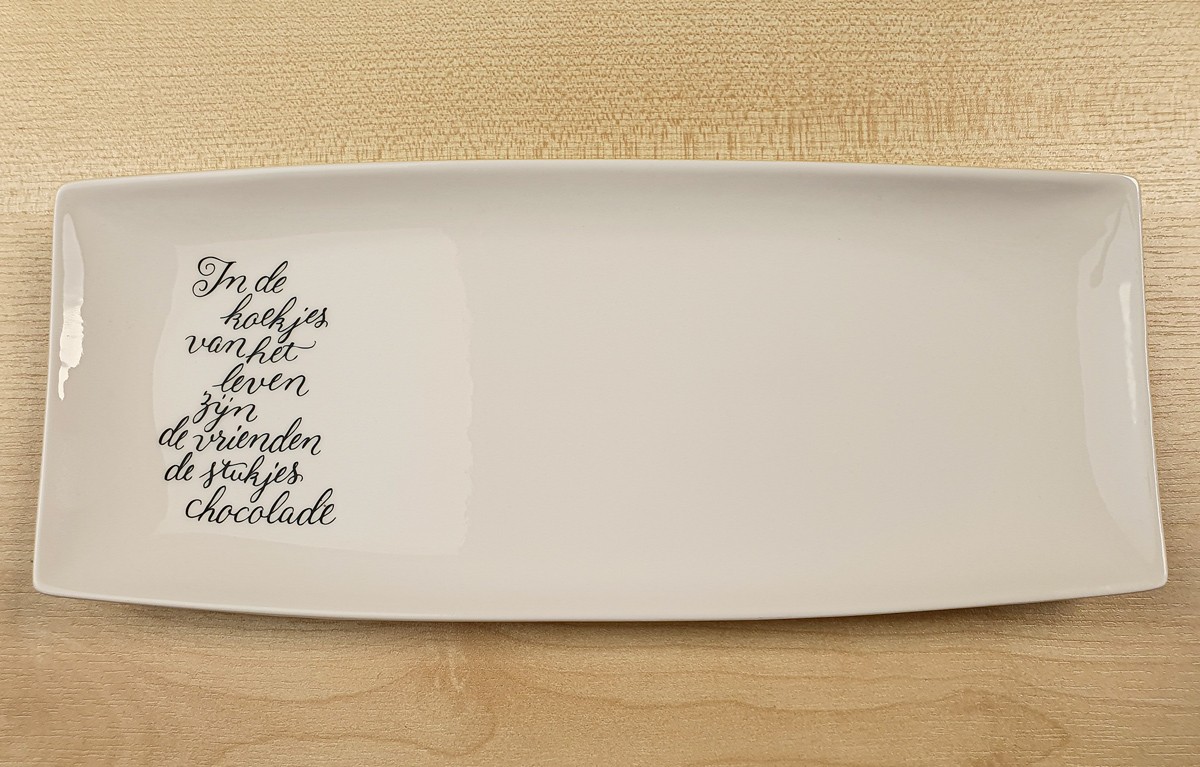 In de
koekjes
van het
leven
zijn
de vrienden
de stukjes
chocolade